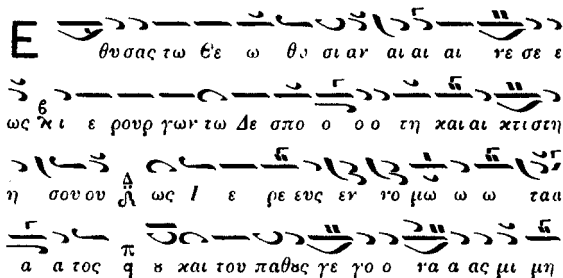 Ε θυσας τω Θε ω θυ σι αν αι αι αι νε σε ε
ως κι ε ρουρ γων τω Δε σπο ο ο ο τη και αι κτι στη
η σου ου ως Ι ε ρε ευς εν νο μω ω ω τα α
α α τος ȣ και του παθȣς γε γο ο ρα α ας μι μη